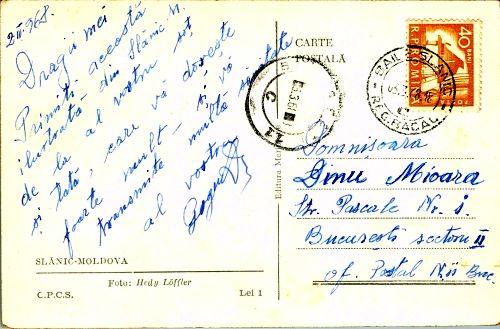 2.III.968.
Dragii mei
Primiți această
ilustrată din Slănic M.
de la al vostru soț
și tată, care vă dorește
foarte mult – și vă
transmite multă sănătate
al vostru
CARTE
POSTALA
40 BANI
R.P.ROMINA
BAILE SLANIC
REG. BACAU
Editura
Domnisoara
Dinu Mioara
Str. Pascale Nr. 1.
Bucuresti sectoru II
of. Postal N: Buc.
SLĂNIC-MOLDOVA
Foto: Hedy Löffler
C.P.C.S.
Lei 1